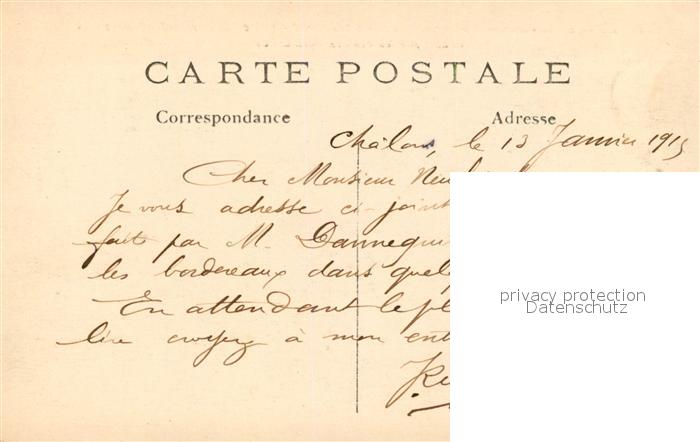 CARTE POSTALE
Correspondance
Adresse
Châlons, le 13 Janvier 1915
Cher Monsieur
Je vous adresse ci-joint
fait par M.
les bordereaux dans
En attendant le
lire croyez à mon
privacy protection
Datenschutz